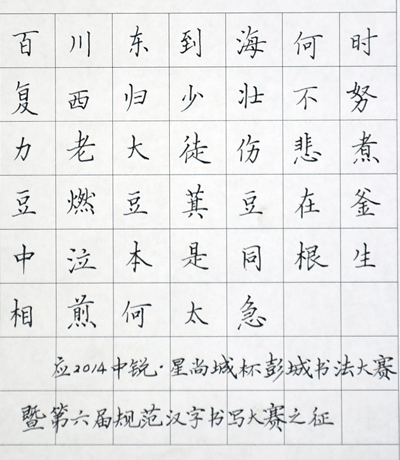 百川东到海何时
复西归少壮不努
力老大徒伤悲煮
豆燃豆萁豆在釜
中泣本是同根生
相煎何太急
应2014中锐·星尚城杯彭城书法大赛
暨第六届规范汉字书写大赛之征